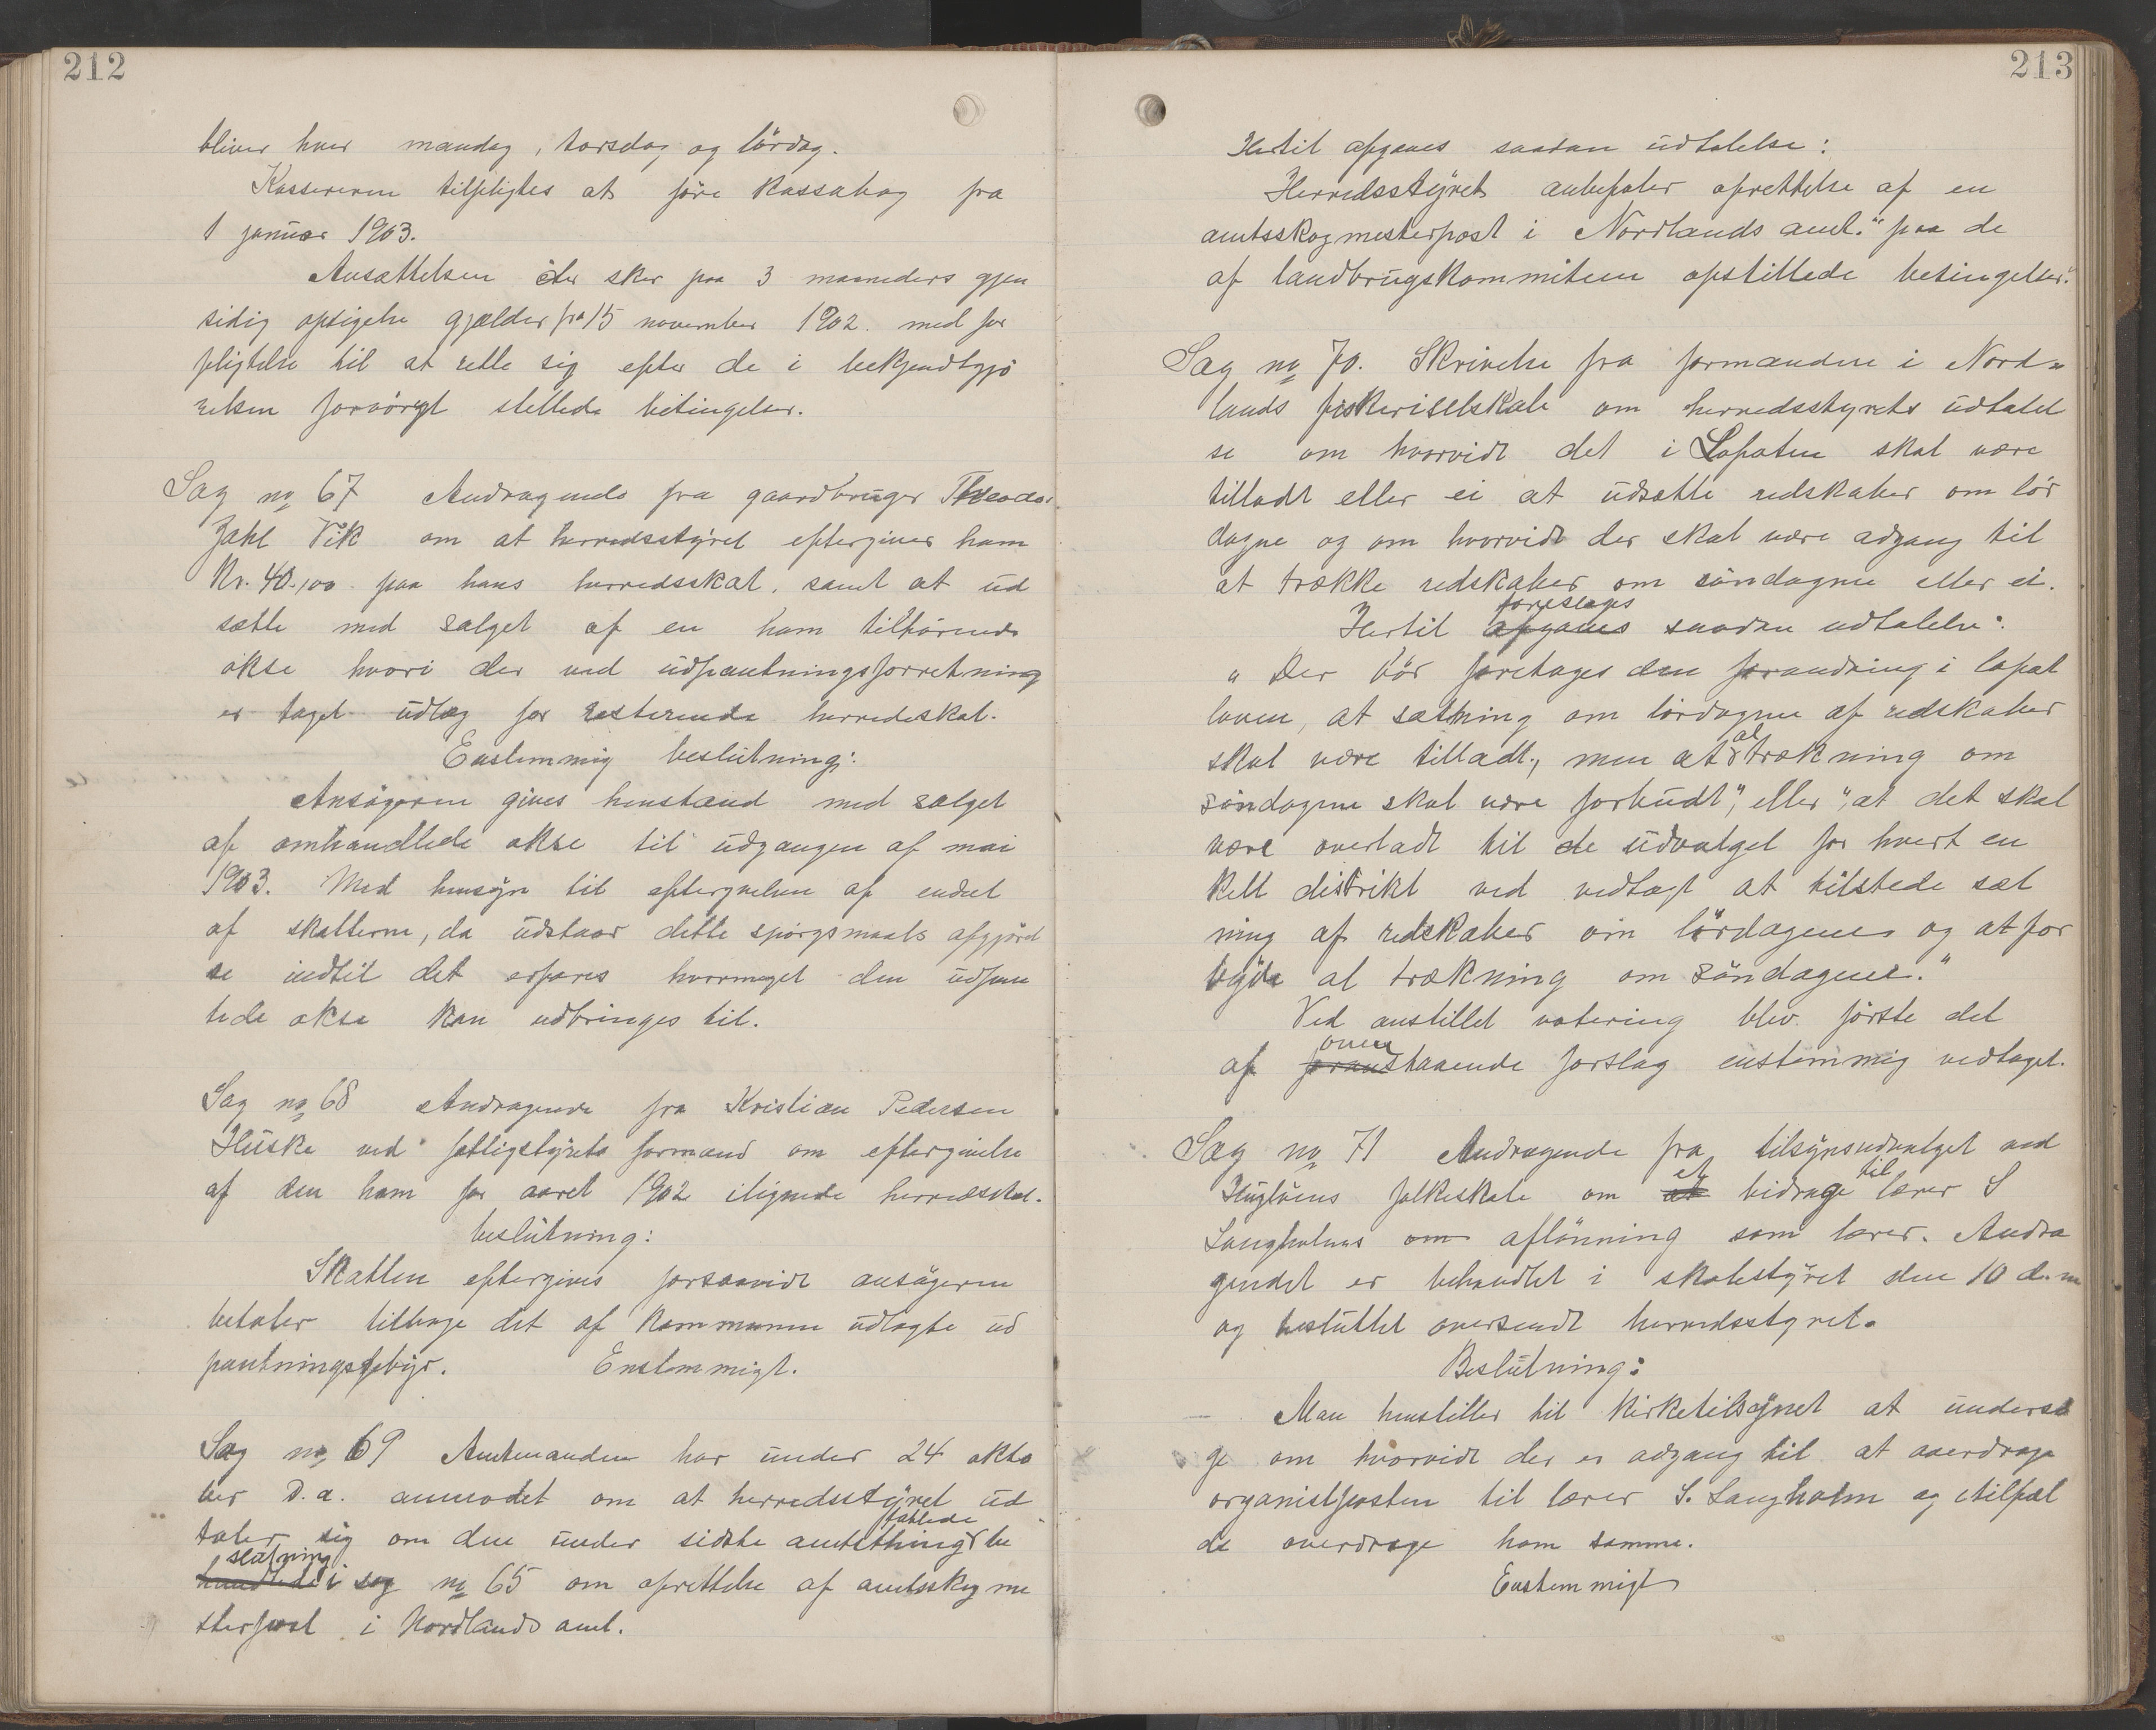 212
bliver hver mandag, torsdag og lördag.
Kassereren tilpligtes at före kassabog fra
1 januar 1903.
Ansættelsen der sker paa 3 maaneders gjen
sidig opsigelse gjælder fra 15 november 1902. med for
pligtelse til at rette sig efter de i bekjendtgjö
relsen forövrigt stillede betingelser.
Sag no 67 Andragende fra gaardbruger Theodor
Zahl Vik om at herredsstyret eftergiver ham
Kr. 40,00 paa hans herredsskat, samt at ud
sætte med salget af en ham tilhörende
okse hvori der ved udpantningsforretning
er taget udlæg for resterende herredsskat.
Enstemmig beslutning:
Ansögeren gives henstand med salget
af omhandlede okse til udgangen af mai
1903. Med hensyn til eftergivelsen af endel
af skatterne, da udstaar dette spörgsmaals afgjörel
se indtil det erfares hvormeget den udpan
tede okse kan udbringes til.
Sag no 68 Andragende fra Kristian Pedersen
Huske ved fattigstyrets formand om eftergivelse
af den ham for aaret 1902 ilignede herredsskat.
beslutning:
Skatten eftergives forsaavidt ansögeren
betaler tilbage det af kommunen udlagte ud
pantningsgebyr. Enstemmigt.
Sag no 69 Amtmanden har under 24 okto
ber d.a. anmodet om at herredsstyret ud
taler sig om den under sidste amtsthing fattede be
slutning handlede i sag no 65 om oprettelse af amtsskogme
sterpost i Nordlands amt.
213
Hertil afgaves saadan udtalelse:
Herredsstyret anbefaler oprettelse af en
amtsskogmesterpost i Nordlands amt." paa de
af landbrugskommiteen opstillede betingelser."
Sag no 70. Skrivelse fra formanden i Nord=
lands fiskeriselskab om herredsstyrets udtalel
se om hvorvidt det i Lofoten skal være
tilladt eller ei at udsætte redskaber om lör
dagne og om hvorvidt der skal være adgang til
at trække redskaber om söndagene eller ei.
Hertil afgaves foreslages saadan udtalelse:
"Der bör foretages den forandring i lofot
loven, at sætning om lördagene af redskaber
skal være tilladt, men at al trækning om
söndagene skal være forbudt", eller ", at det skal
være overladt til de udvalget for hvert en
kelt distrikt ved vedtægt at tilstede sæt
ning af redskaber om lördagene og at for
byde al trækning om söndagene."
Ved anstillet votering blev förste det
af foran oven staaende forslag enstemmig vedtaget.
Sag no 71 Andragende fra tilsynsudvalget ved
Huglöens folkeskole om at et bidrage til lærer S
Langholms om aflönning som lærer. Andra
gendet er behandlet i skolestyret den 10 d.m
og besluttet oversendt herredsstyret.
Beslutning:
Man henstiller til kirketilsynet at undersö
ge om hvorvidt der er adgang til at overdrage
organistposten til lærer S. Langholm og itilfæl
de overdrage ham samme.
Enstemmigt